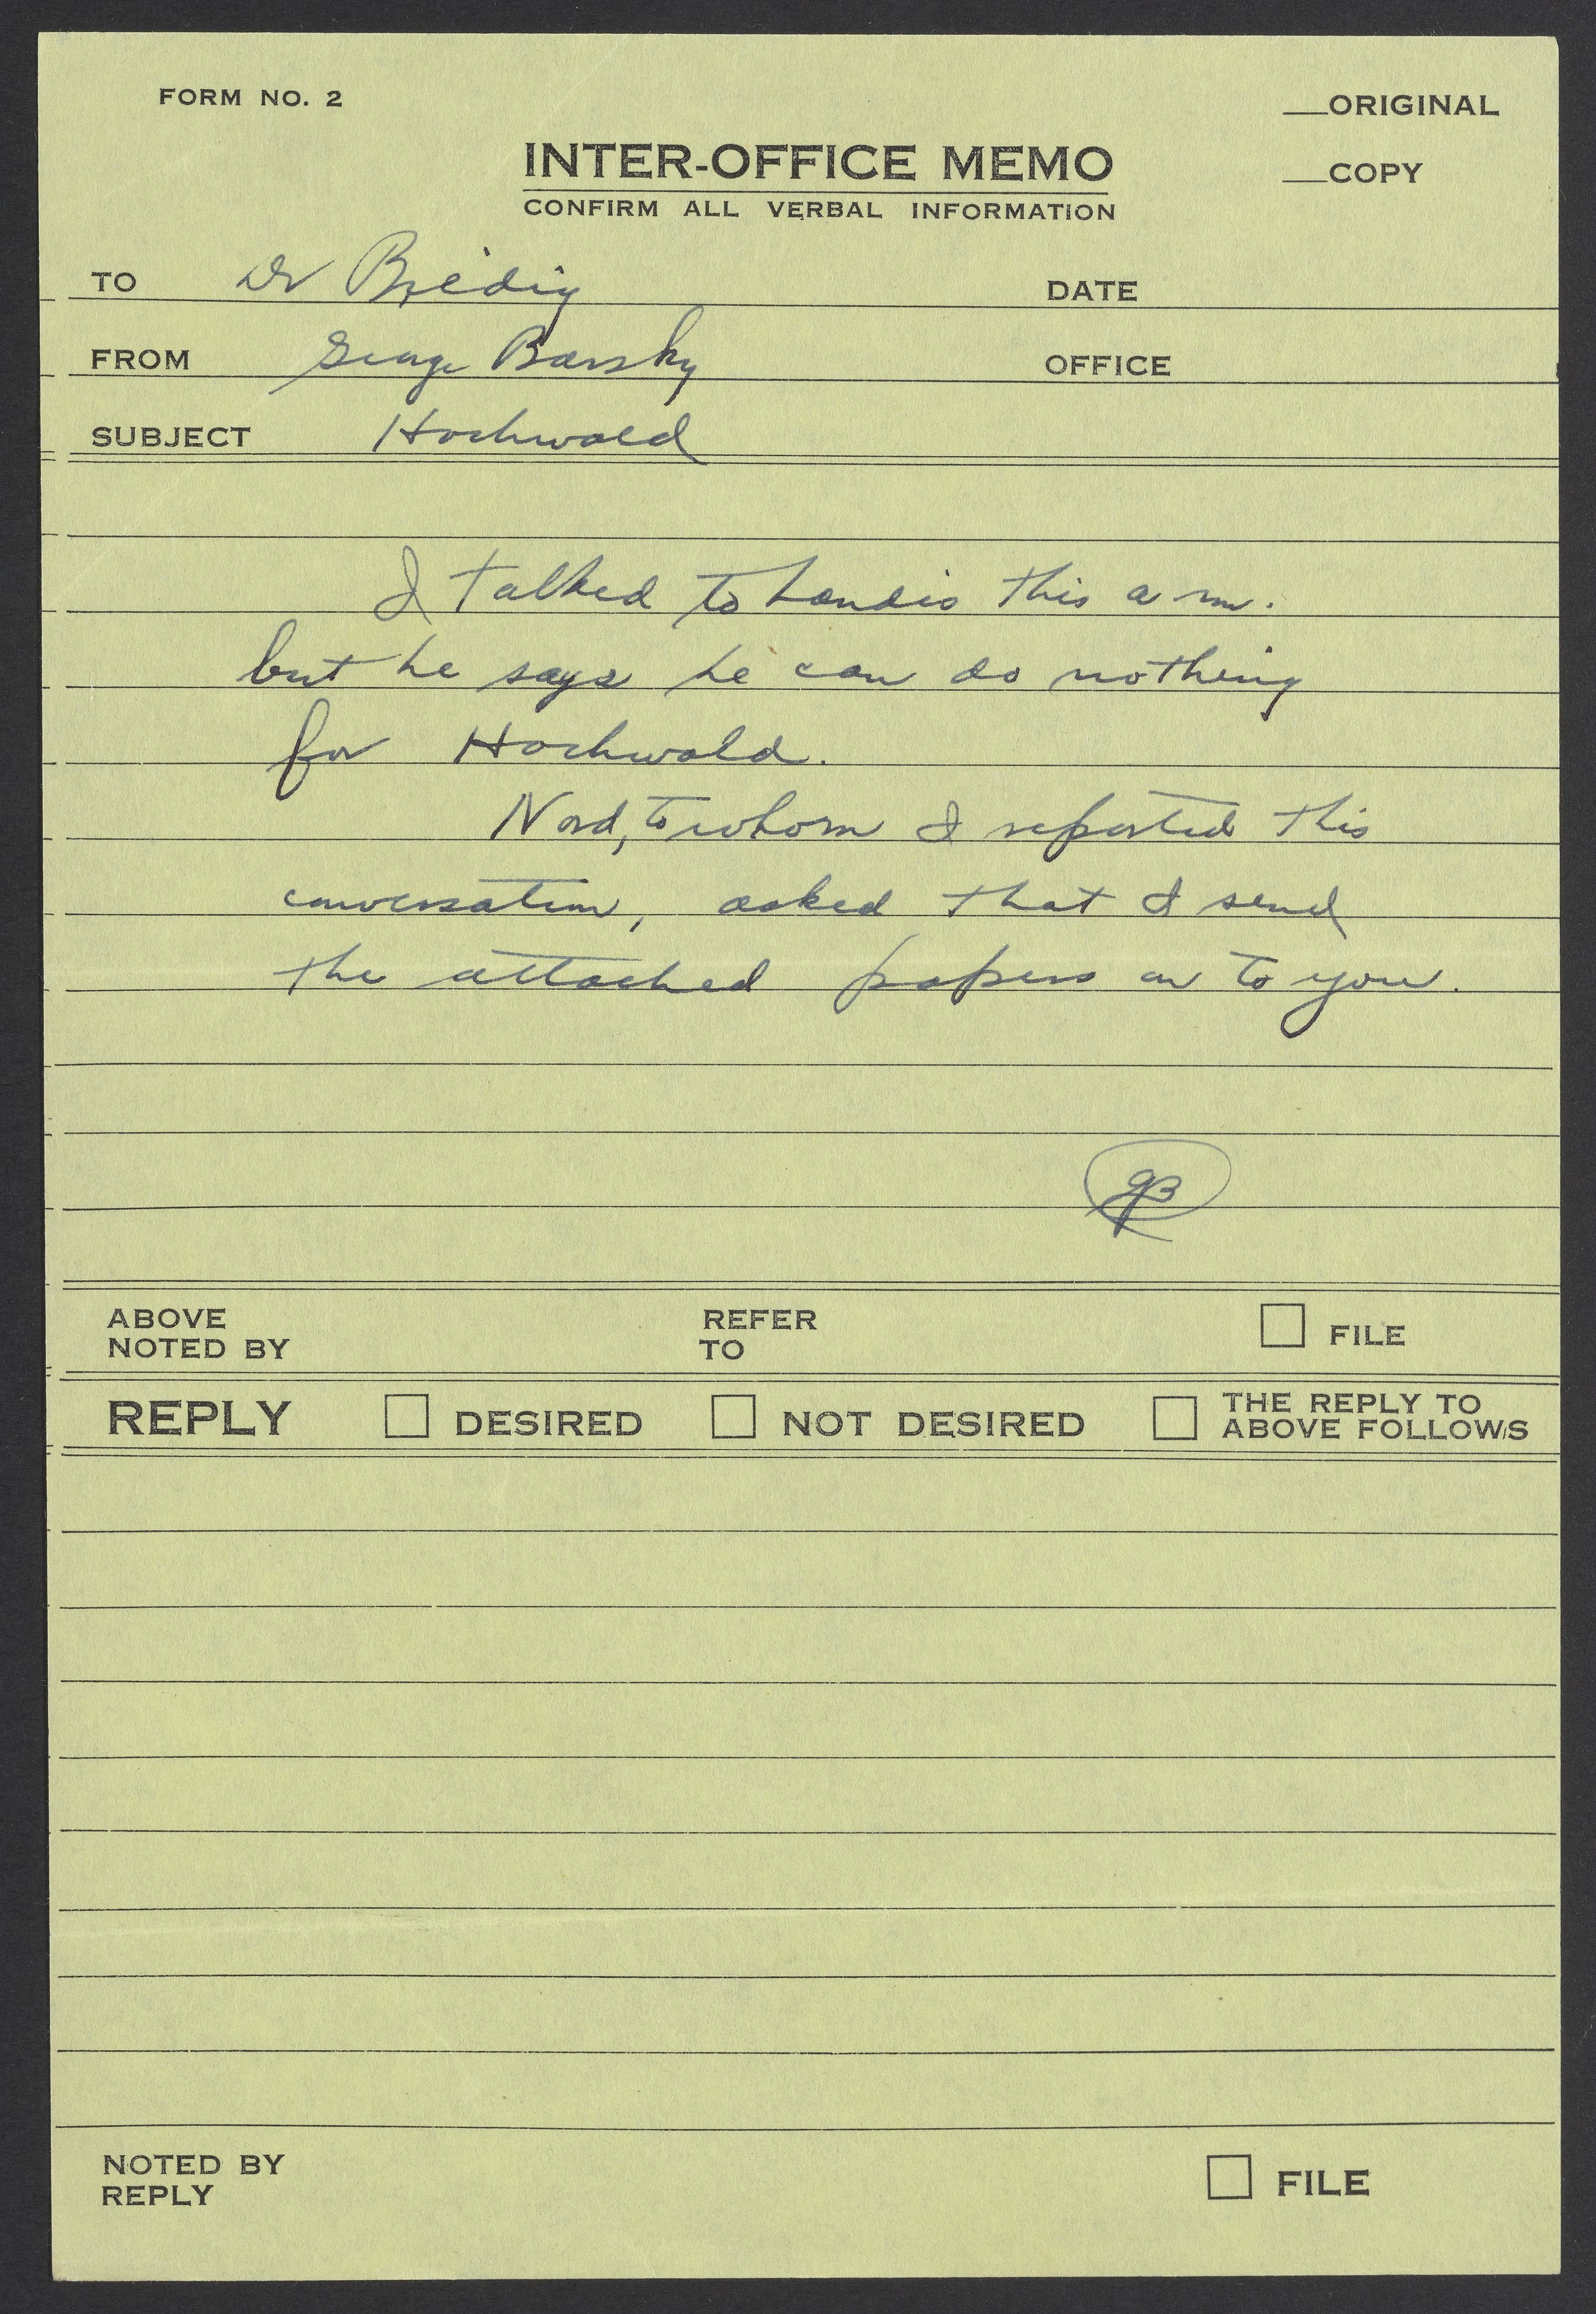 FORM NO. 2
__ORIGINAL
INTER-OFFICE MEMO
__COPY
CONFIRM ALL VERBAL INFORMATION
TO Dr Bredig
DATE
FROM George Barsky
OFFICE
SUBJECT Hochwald
I talked to Landis this a m.
but he says he can do nothing
for Hochwald.
Nord, to whom I reported this
conversation, asked that I send
the attached papers on to you.
GB
ABOVE
NOTED BY
REFER
TO
FILE
REPLY DESIRED NOT DESIRED THE REPLY TO
ABOVE FOLLOWS
NOTED BY
REPLY
FILE